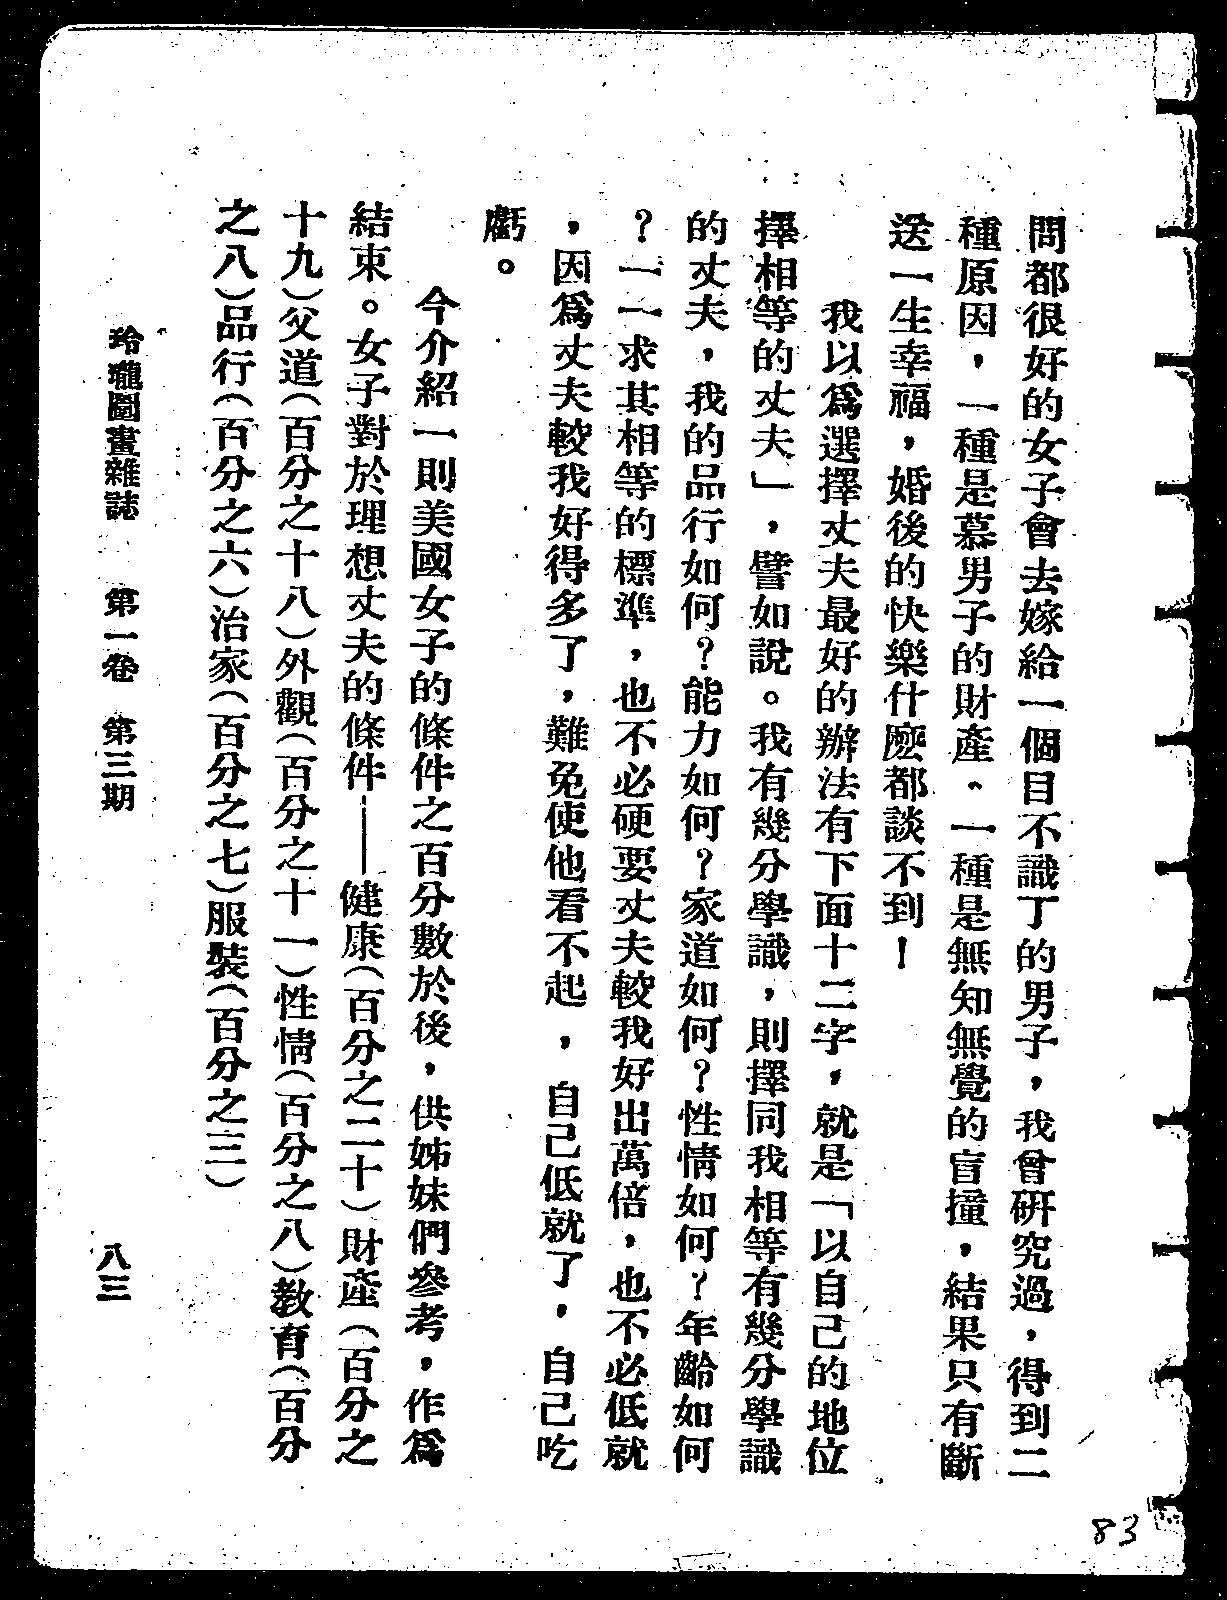 問都很好的女子會去嫁給一個目不識丁的男子，我曾研究過，得到二
種原因，一種是慕男子的財產。一種是無知無覺的盲撞，結果只有斷
送一生幸福，婚後的快樂什麼都談不到！
我以爲選擇丈夫最好的辦法有下面十二字，就是「以自己的地位
擇相等的丈夫」，譬如說。我有幾分學識，則擇同我相等有幾分學識
的丈夫，我的品行如何？能力如何？家道如何？性情如何？年齡如何
？一一求其相等的標準，也不必硬要丈夫較我好出萬倍，也不必低就
，因爲丈夫較我好得多了，難免使他看不起，自己低就了，自己吃
虧。
今介紹一則美國女子的條件之百分數於後，供姊妹們參考，作爲
結束。女子對於理想丈夫的條件——健康（百分之二十）財產（百分之
十九）父道（百分之十八）外觀（百分之十一）性情（百分之八）教育（百分
之八）品行（百分之六）治家（百分之七）服裝（百分之三）
玲瓏圖畫雜誌 第一卷 第三期 八三
83